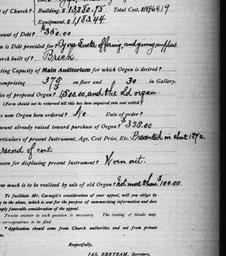 of Church? { Building, $13250.75 Total Cost,
Equipment, $1,183.44
mount of Debt? $350.00
is Debt provided for?
urch built of? Brick.
ting Capacity of Main Auditorium for which Organ is desired?
comprising 375 on floor and 30 in Gallery.
ice of proposed Organ? 1,500.00, and the old organ.
(Form should not be returned till this has been enquired into and settled.)
s new Organ been ordered? No. Date of order?
mount already raised toward purchase of Organ? $325.00
rticulars of present Instrument, Age, Cost Price, Etc. Presented in about
record of cost.
ason for displacing present Instrument? Worn out.
ow much is to be realised by sale of old Organ? Not more than $100.00.
To facilitate Mr. Carnegie's consideration of your appeal, will you oblige by
in the above, which is sent for the purpose of summarising information and does
mply favorable consideration of the appeal.
Precise answer to each question is necessary. The issuing of blanks may
no correspondence to be filed.
* Application should come from Church authorities and not from private
Respectfully,
JAS. BERTRAM, Secretary,